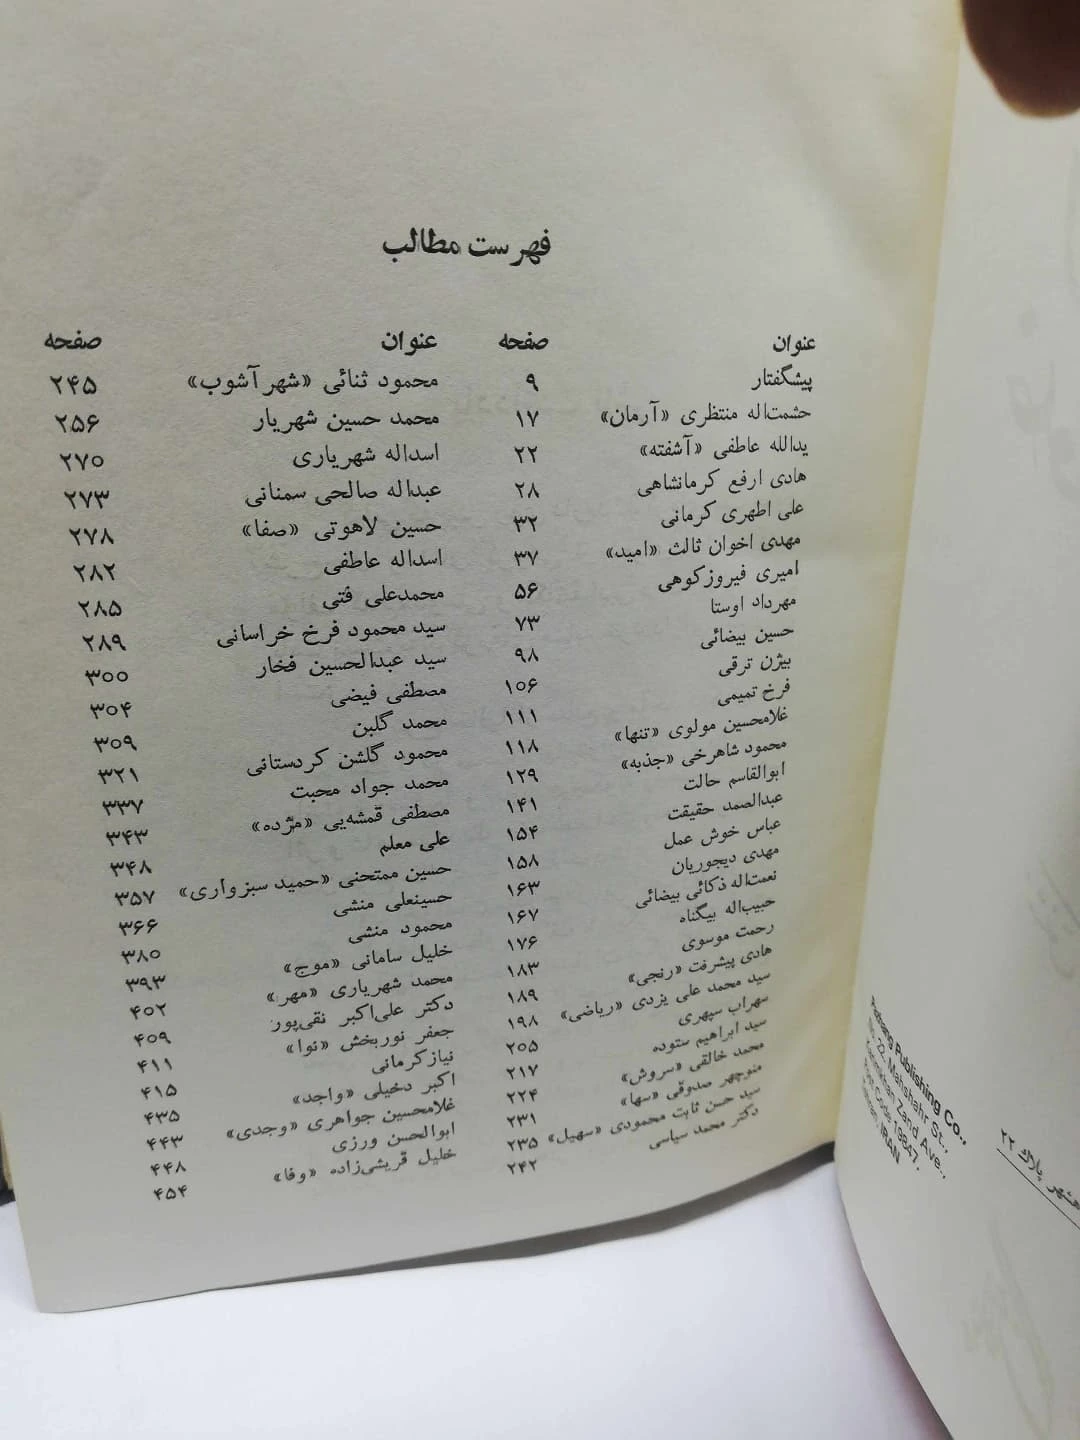 فهرست مطالب
عنوان صفحه
پیشگفتار ۹
حشمت‌اله منتظری «آرمان» ۱۷
یدالله عاطفی «آشفته» ۲۲
هادی ارفع کرمانشاهی ۲۸
علی اطهری کرمانی ۳۲
مهدی اخوان ثالث «امید» ۳۷
امیری فیروزکوهی ۵۶
مهرداد اوستا ۷۳
حسین بیضائی ۹۸
بیژن ترقی ۱۰۶
فرخ تمیمی ۱۱۱
غلامحسین مولوی «تنها» ۱۱۸
محمود شاهرخی «جذبه» ۱۲۹
ابوالقاسم حالت ۱۴۱
عبدالصمد حقیقت ۱۵۴
عباس خوش عمل ۱۵۸
مهدی دیجوریان ۱۶۳
نعمت‌اله ذکائی بیضائی ۱۶۷
حبیب‌اله بیگناه ۱۷۶
رحمت موسوی ۱۸۳
هادی پیشرفت «رنجی» ۱۸۹
سید محمد علی یزدی «ریاضی» ۱۹۸
سهراب سپهری ۲۰۵
سید ابراهیم ستوده ۲۱۷
محمد خالقی «سروش» ۲۲۴
منوچهر صدوقی «سها» ۲۳۱
سید حسن ثابت محمودی «سهیل» ۲۳۵
دکتر محمد سیاسی ۲۴۲
عنوان صفحه
محمود ثنائی «شهرآشوب» ۲۴۵
محمد حسین شهریار ۲۵۶
اسداله شهریاری ۲۷۰
عبداله صالحی سمنانی ۲۷۳
حسین لاهوتی «صفا» ۲۷۸
اسداله عاطفی ۲۸۲
محمدعلی فتی ۲۸۵
سید محمود فرخ خراسانی ۲۸۹
سید عبدالحسین فخار ۳۰۰
مصطفی فیضی ۳۰۴
محمد گلبن ۳۰۹
محمود گلشن کردستانی ۳۲۱
محمد جواد محبت ۳۳۷
مصطفی قمشه‌یی «مژده» ۳۴۳
علی معلم ۳۴۸
حسین ممتحنی «حمید سبزواری» ۳۵۷
حسینعلی منشی ۳۶۶
محمود منشی ۳۸۰
خلیل سامانی «موج» ۳۹۳
محمد شهریاری «مهر» ۴۰۲
دکتر علی‌اکبر نقی‌پور ۴۰۹
جعفر نوربخش «نوا» ۴۱۱
نیازکرمانی ۴۱۵
اکبر دخیلی «واجد» ۴۳۵
غلامحسین جواهری «وجدی» ۴۴۳
ابوالحسن ورزی ۴۴۸
خلیل قریشی‌زاده «وفا» ۴۵۴
Publishing Co.,
Mahshahr St.,
Zand Ave.,
Code 15847,
IRAN
پلاک ۲۲